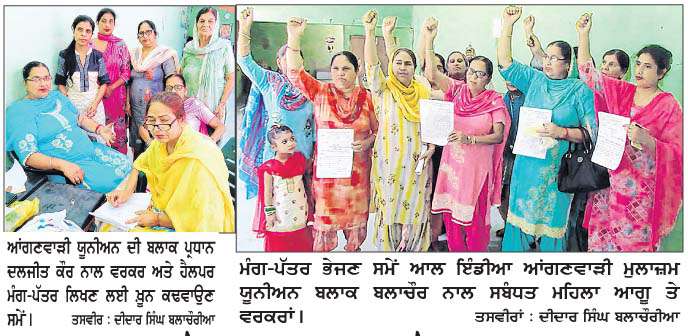 ਆਂਗਣਵਾੜੀ ਯੂਨੀਅਨ ਦੀ ਬਲਾਕ ਪ੍ਰਧਾਨ
ਦਲਜੀਤ ਕੌਰ ਨਾਲ ਵਰਕਰ ਅਤੇ ਹੈਲਪਰ
ਮੰਗ-ਪੱਤਰ ਲਿਖਣ ਲਈ ਖ਼ੂਨ ਕਢਵਾਉਣ
ਸਮੇਂ। ਤਸਵੀਰ : ਦੀਦਾਰ ਸਿੰਘ ਬਲਾਚੌਰੀਆ
ਮੰਗ-ਪੱਤਰ ਭੇਜਣ ਸਮੇਂ ਆਲ ਇੰਡੀਆ ਆਂਗਣਵਾੜੀ ਮੁਲਾਜ਼ਮ
ਯੂਨੀਅਨ ਬਲਾਕ ਬਲਾਚੌਰ ਨਾਲ ਸਬੰਧਤ ਮਹਿਲਾ ਆਗੂ ਤੇ
ਵਰਕਰਾਂ। ਤਸਵੀਰਾਂ : ਦੀਦਾਰ ਸਿੰਘ ਬਲਾਚੌਰੀਆ